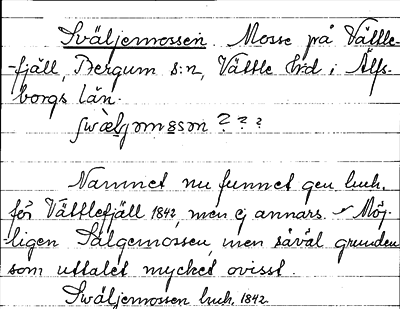 Sväljemossen. Mosse på Vättle-
-fjäll, Bergum s:n, Vättle hrd i Älfs-
borgs län.
swæljəmɔsən ? ? ?
Namnet nu funnet gen. lmk.
för Vättlefjäll 1842, men ej annars. Möj-
ligen Sälgemossen, men såväl grunden
som uttalet mycket ovisst.
Swäljemossen lmk. 1842.